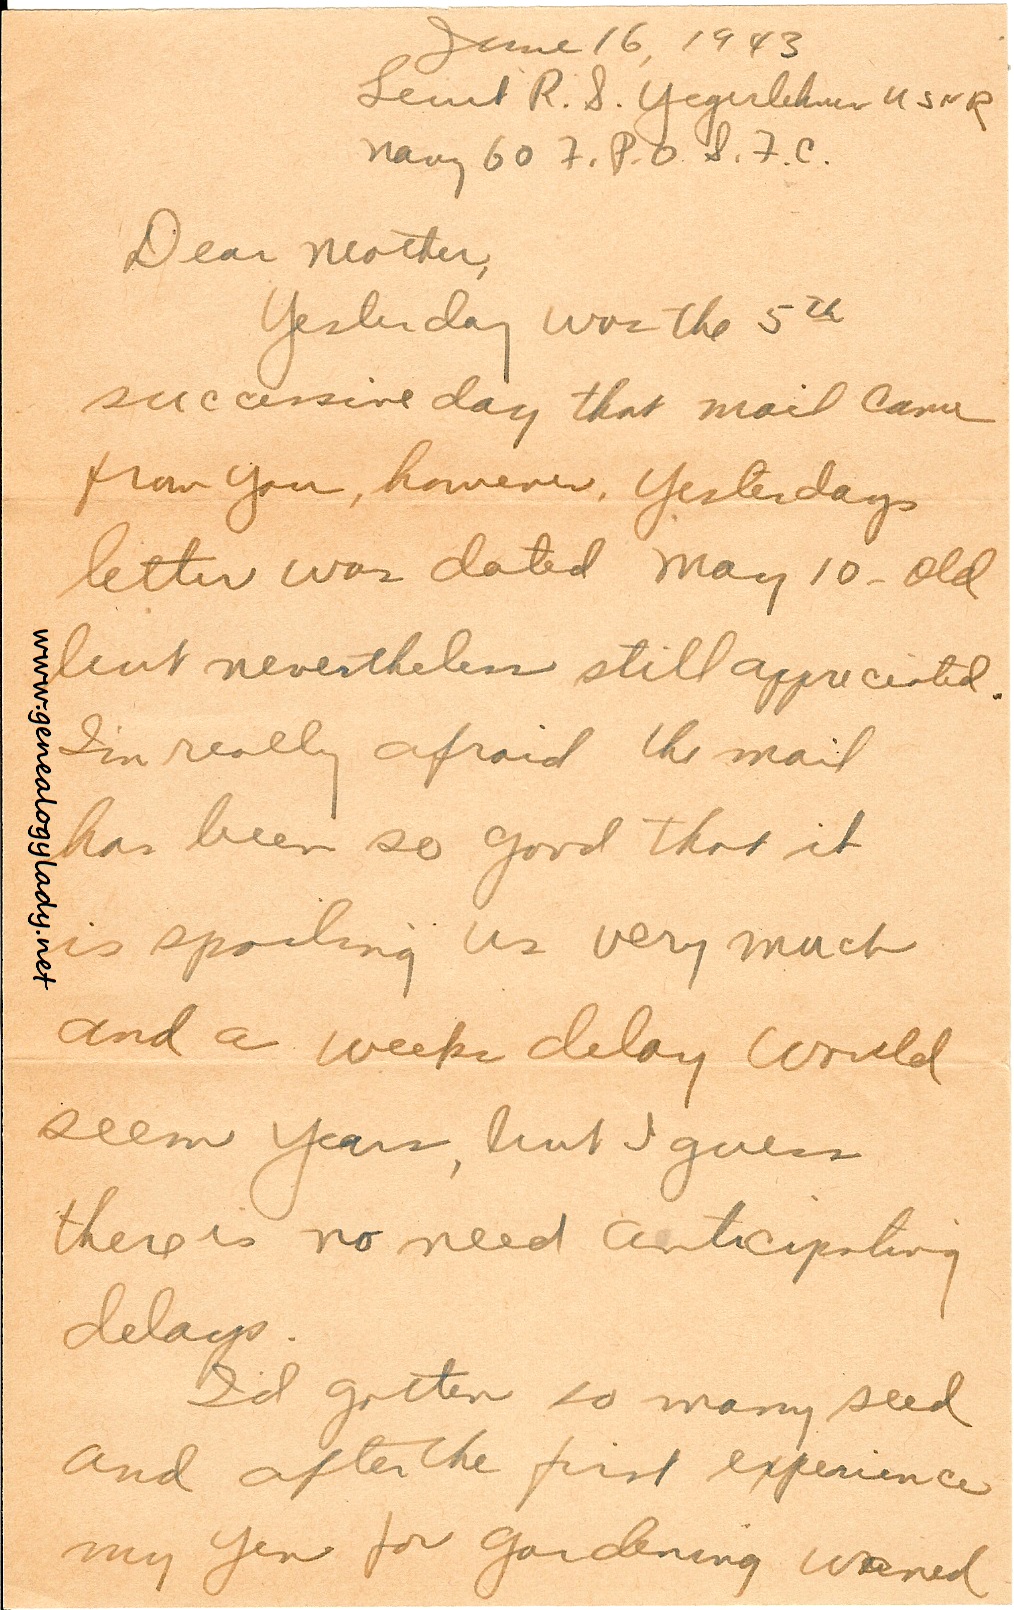 June 16, 1943
Leiut R. S. Yegerlehner USNR
Navy 60 F.P.O. S.F.C.
Dear Mother,
Yesterday was the 5th
successive day that mail came
from you, however, yesterdays
letter was dated May 10 - old
but nevertheless still appreciated.
I'm really afraid the mail
has been so good that it
is spoiling us very much
and a weeks delay would
seem years, but I guess
there is no need anticipating
delays.
I'd gotten so many seed
and after the first experience
my yen for gardening waned
www.genealogylady.net